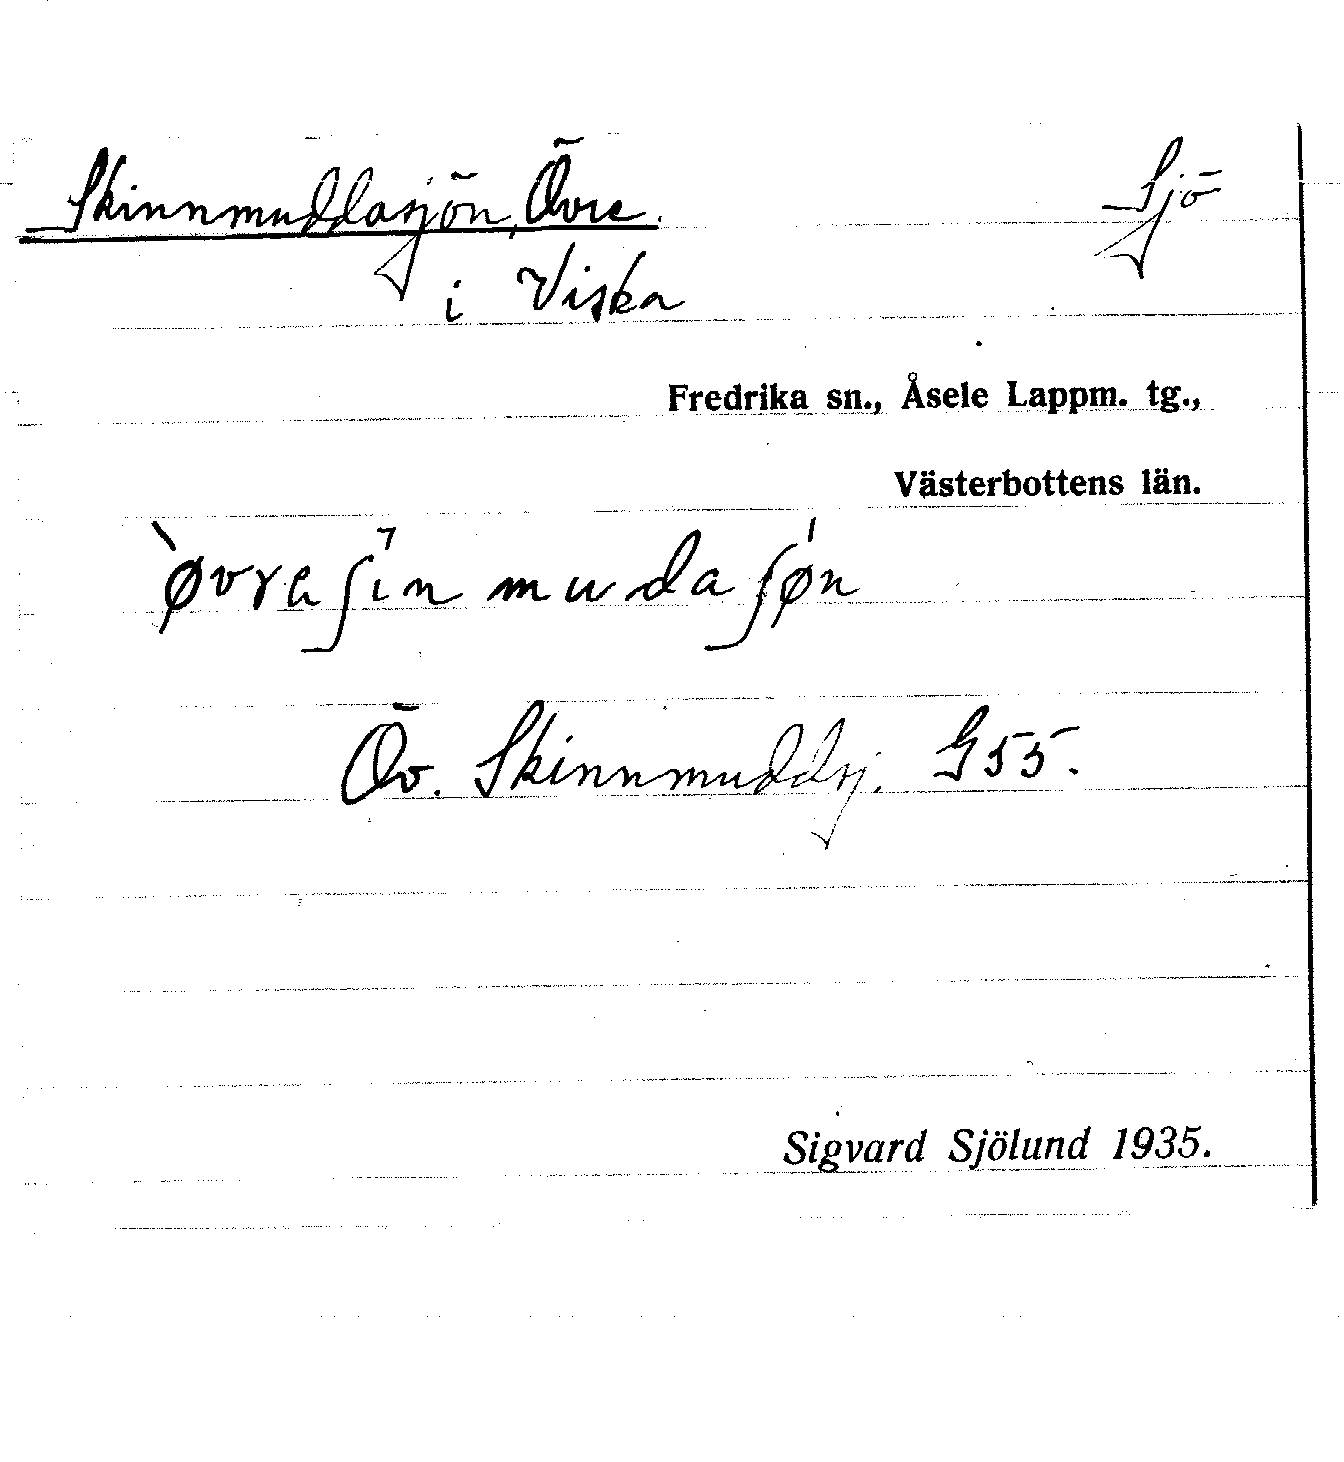 Skinnmuddasjön, Övre. Sjö
i Viska
Fredrika sn., Åsele Lappm. tg.,
Västerbottens län.
`øvra ʃin muda ʃøn
Öv. Skinnmuddsj. G55.
Sigvard Sjölund 1935.